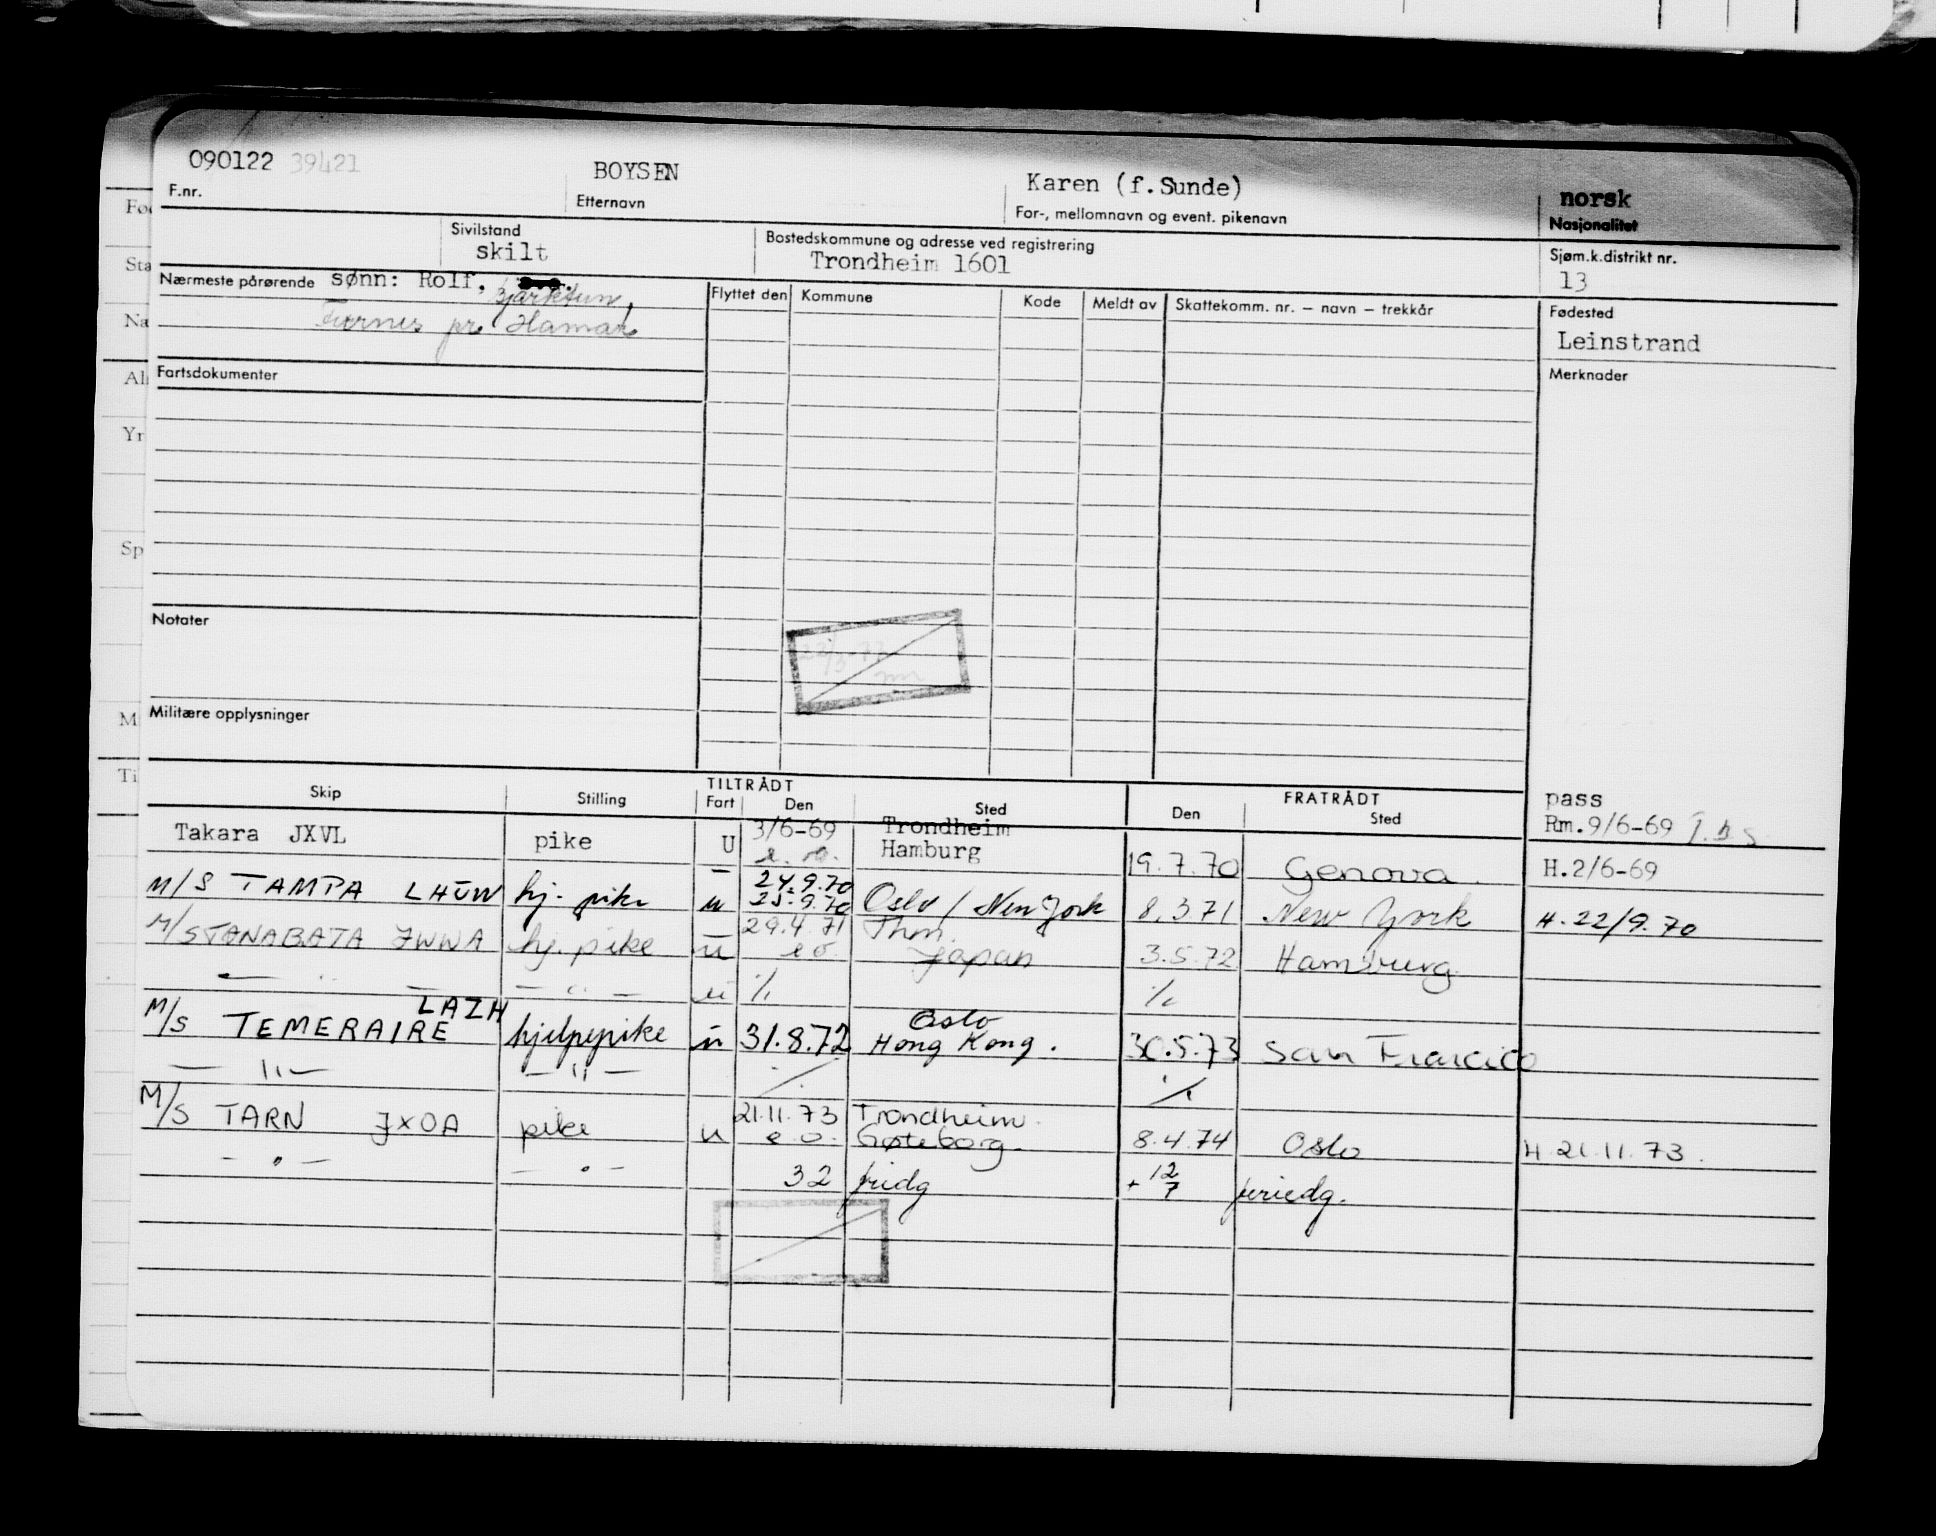 090122 39421 BOYSEN Karen (f.Sunde) norsk
F.nr. Etternavn For-, mellomnavn og event. pikenavn Nasjonalitet
Sivilstand Bostedskommune og adresse ved registrering Sjøm.k.distrikt nr.
skilt Trondheim 1601 13
Nærmeste pårørende sønn: Rolf, Bjarktun, Flyttet den Kommune Kode Meldt av Skattekomm. nr. – navn – trekkår Fødested
pr Hamar Leinstrand
Fartsdokumenter Merknader
Notater
Militære opplysninger
TILTRÅDT FRATRÅDT
Skip Stilling Fart Den Sted Den Sted pass
Rm.9/6-69
Takara JXVL pike U 3/6-69 Trondheim
Hamburg 19.7.70 Genova H.2/6-69
M/S TAMPA LHUW hj. pike u 24.9.70
25.9.70 Oslo / New York 8.3.71 New York H.22/9.70
M/S TANABATA JWWA hj. pike u 29.4.71 Thm.
e.o. Japan 3.5.72 Hamburg
— " — — " — u ./. ./.
LAZH
M/S TEMERAIRE hjelpepike u 31.8.72 Oslo
Hong Kong. 30.5.73 San Francico
— " — — " — ./. ./.
M/S TARN JXOA pike u 21.11.73 Trondheim.
e.o. Gøteborg. 8.4.74 Oslo H 21.11.73.
— " — — " — 32 fridg + 12/7 feriedg.
Fø
Sta
Na
Al
Yr
Sp
M
Ti